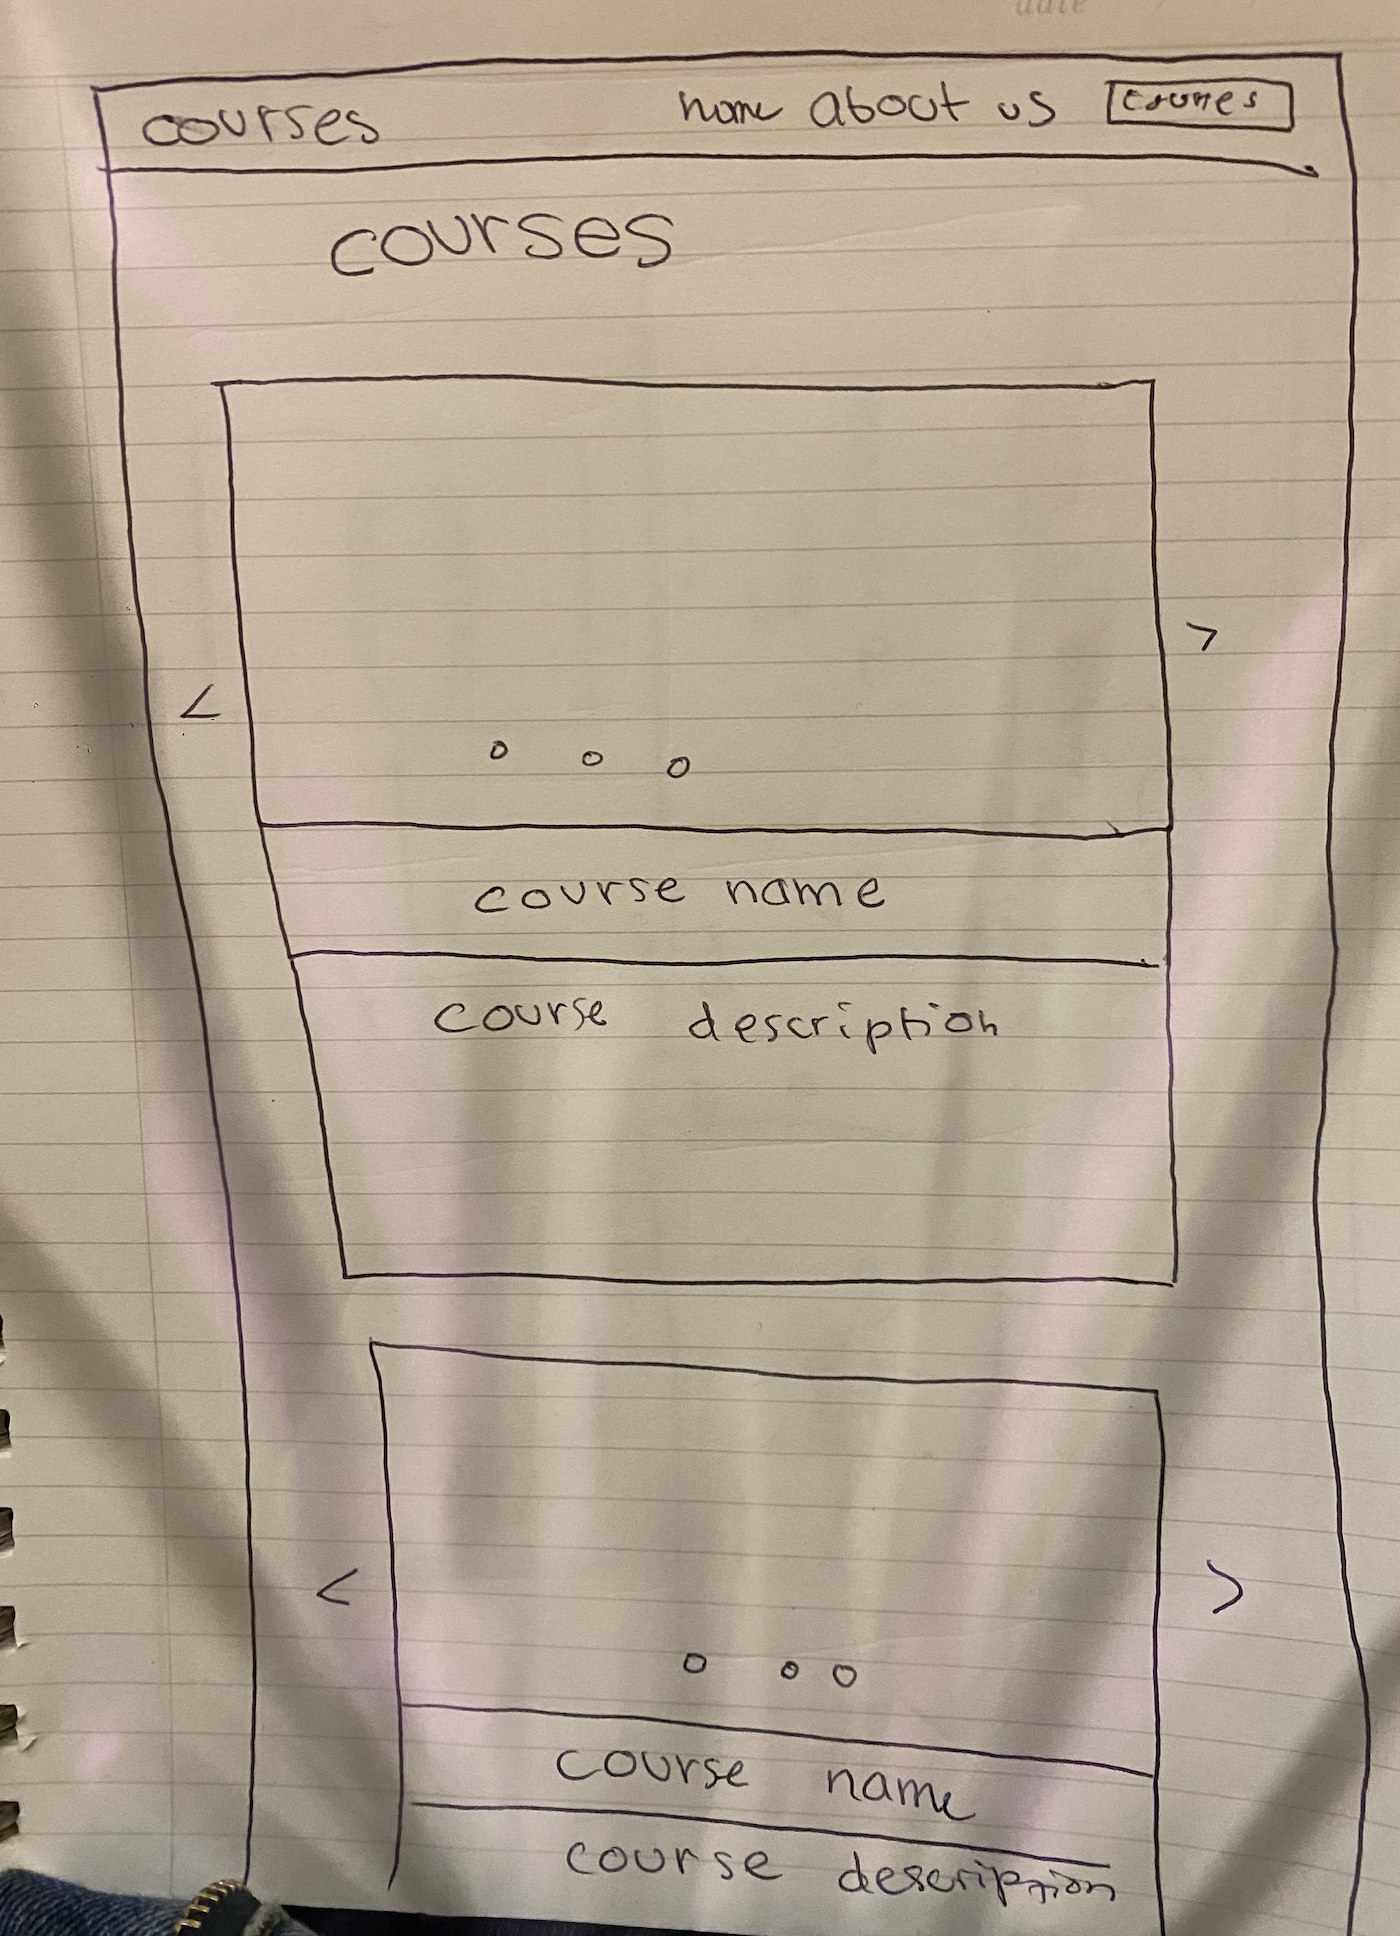 date
courses home about us courses
courses
< >
course name
course description
< >
course name
course description